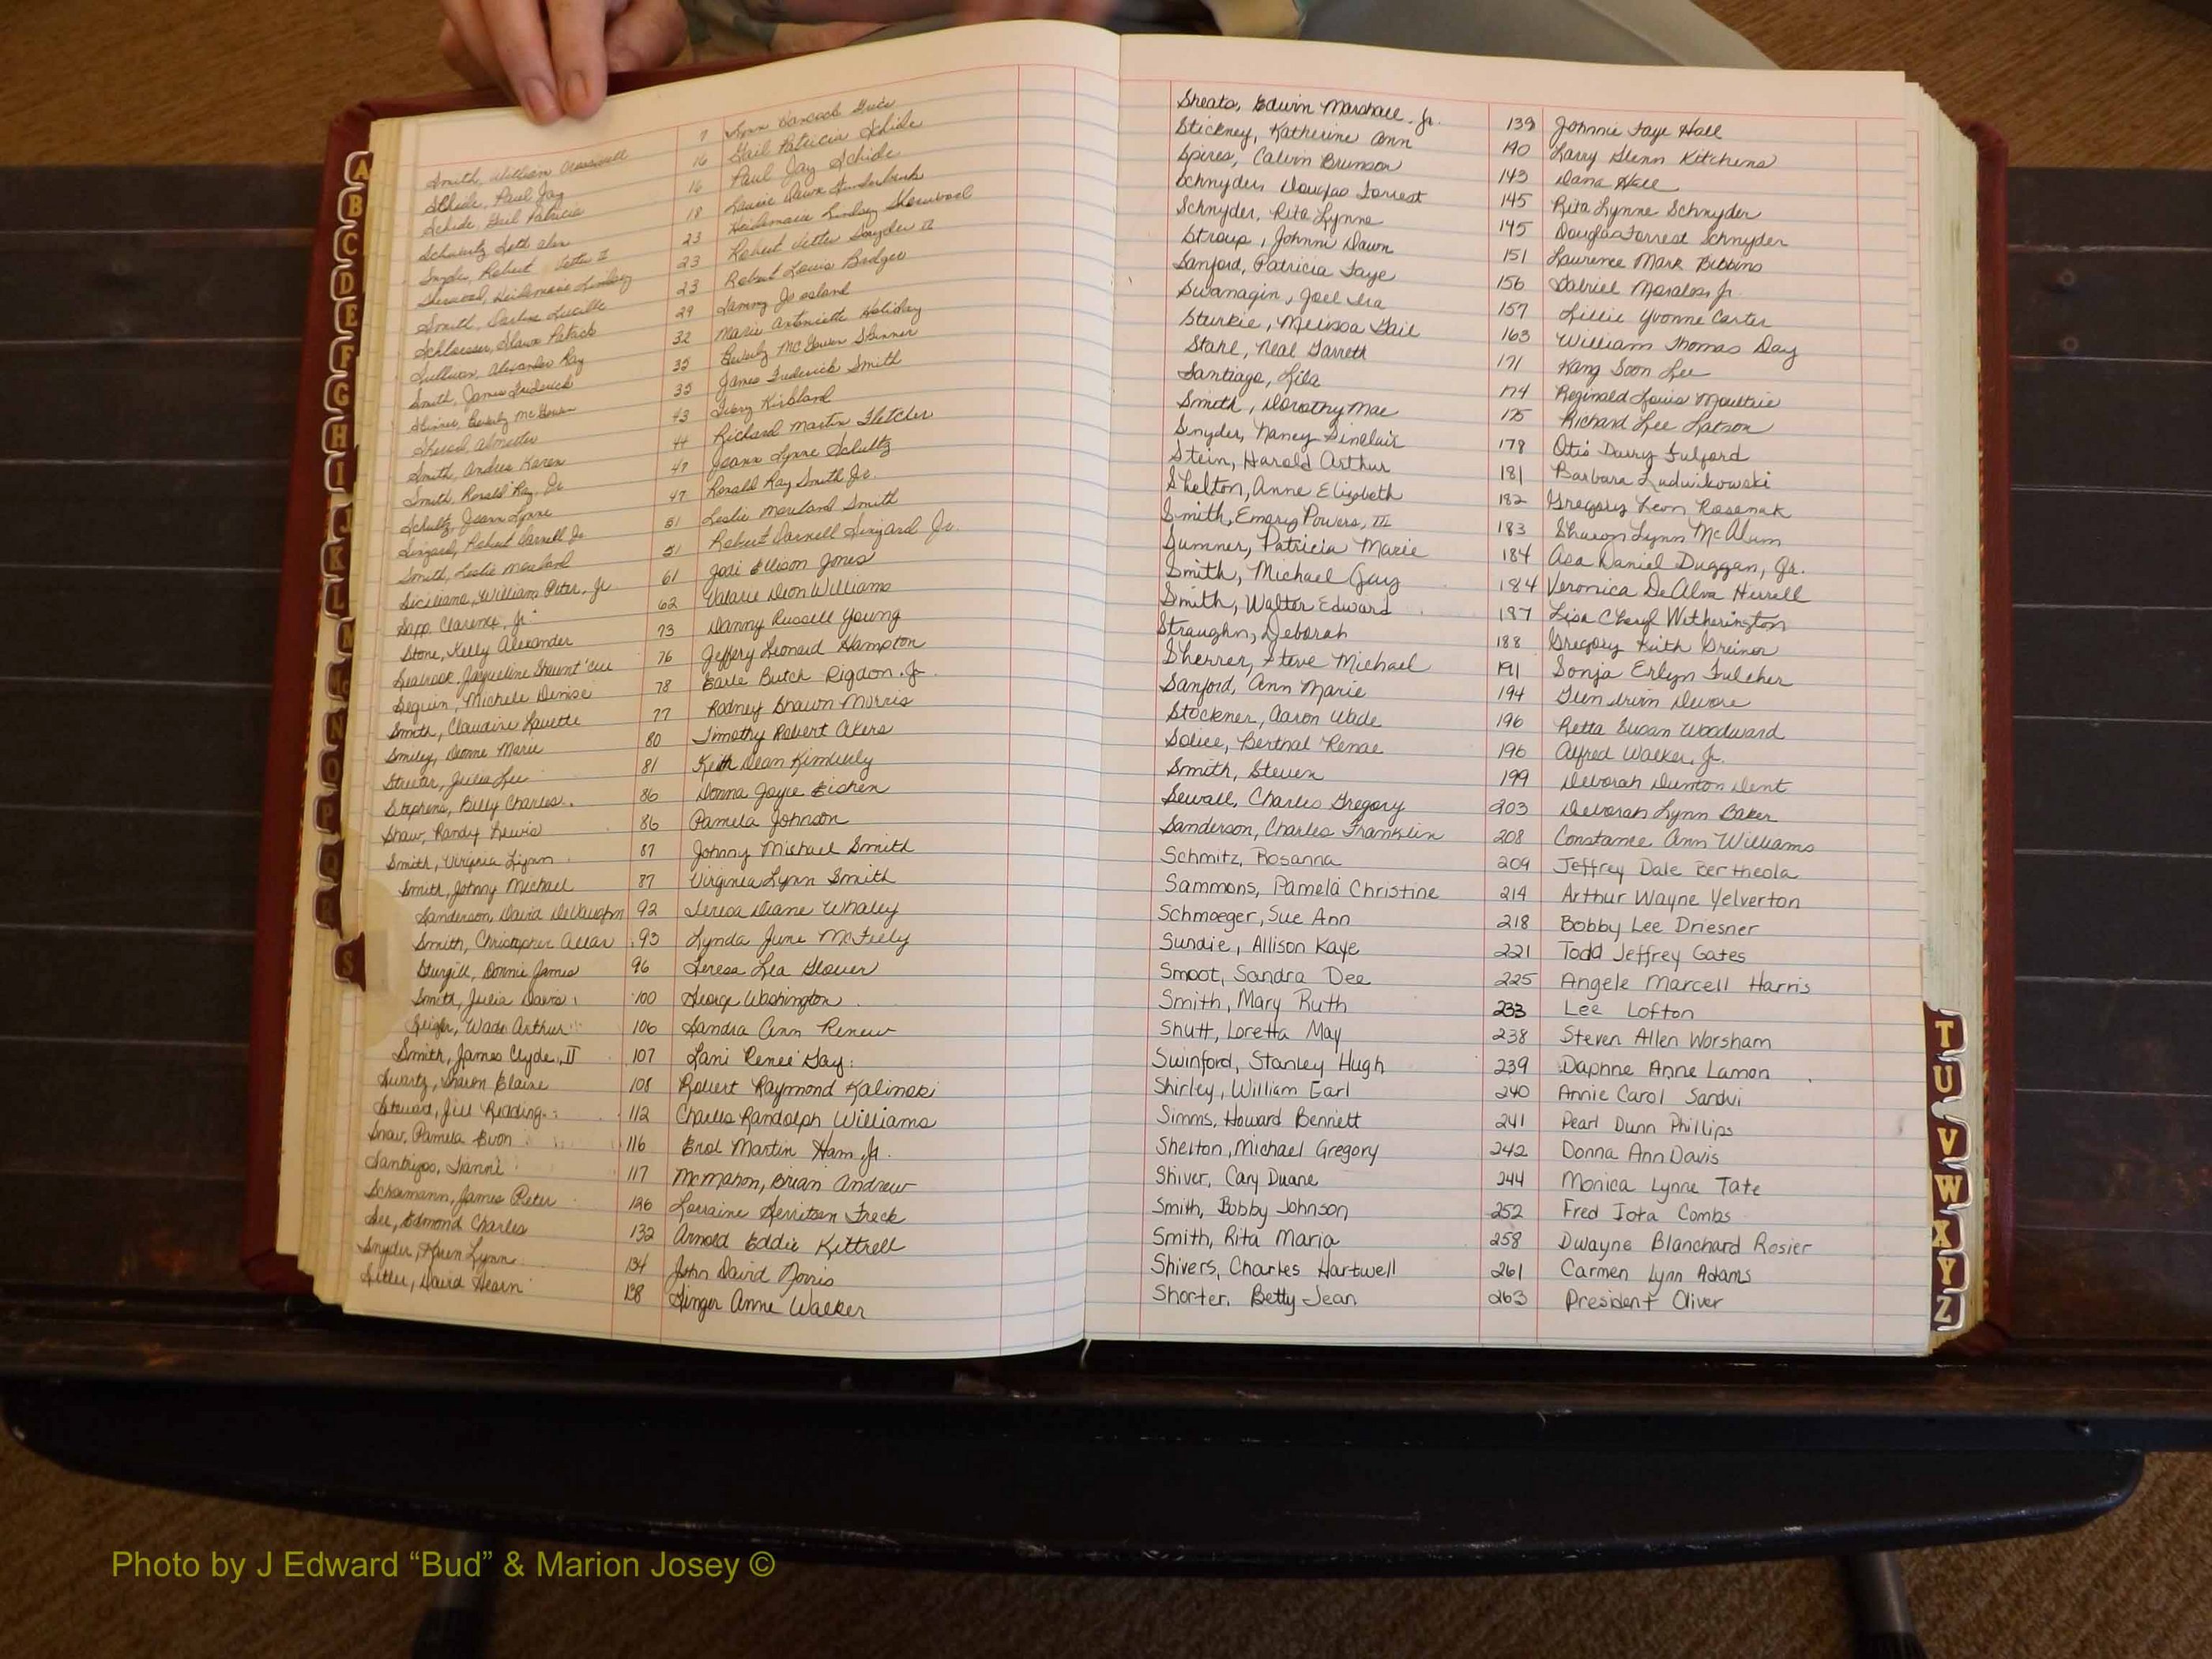 Smith, William 7 Lynn Hancock Grice
Schide, Paul Jay 16 Gail Patricia Schide
Schide, Gail Patricia 16 Paul Jay Schide
Schwartz, Seth Alan 18 Laurie Dawn Funderburk
Snyder, Robert Vetter II 23 Heidemarie Lindsey Sherwood
Sherwood, Heidemarie Lindsey 23 Robert Vetter Snyder II
Smith, Darline Lucille 23 Robert Louis Bridges
Schloesser, Shawn Patrick 29 Tammy Jo
Sullivan, Alexander Ray 32 Marie Antoinette Holiday
Smith, James Frederick 35 Beverly McGowen Skinner
Skinner, Beverly McGowen 35 James Frederick Smith
43 Kirkland
Smith, Andrea Karen 44 Richard Martin Fletcher
Smith, Ronald Ray, Jr. 47 Jeann Lynne Schultz
Schultz, Jeann Lynne 47 Ronald Ray Smith, Jr.
Robert Darnell Jr. 51 Leslie Moreland Smith
Smith, Leslie Moreland 51 Robert Darnell Jr.
Siciliano, William Peter, Jr. 61 Jodi Ellison Jones
Sapp, Clarence, Jr. 62 Valarie Dion Williams
Stone, Kelly Alexander 73 Danny Russell Young
Seabrook, Jacqueline 76 Jeffery Leonard Hampton
Seguin, Michele Denise 78 Earle Butch Rigdon, Jr.
Smith, Claudine Lavette 77 Rodney Shawn Morris
Smiley, Dionne Marie 80 Timothy Robert Akers
Streeter, Julia Lee 81 Keith Dean Kimberly
Stephens, Billy Charles 86 Donna Joyce Eishen
Shaw, Randy Lewis 86 Pamela Johnson
Smith, Virginia Lynn 87 Johnny Michael Smith
Smith, Johnny Michael 87 Virginia Lynn Smith
Sanderson, David DeVaughn 92 Teresa Diane Whaley
Smith, Christopher Allan 93 Lynda June McFeely
Sturgill, Donnie James 96 Teresa Lea Glover
Smith, Julia Davis 100 George Washington
Seigler, Wade Arthur 106 Sandra Ann Renew
Smith, James Clyde, II 107 Lani Renee Gay
Swartz, Sharon Elaine 108 Robert Raymond Kalinoski
Stewart, Jill Redding 112 Charles Randolph Williams
Snow, Pamela Evon 116 Erol Martin Ham, Jr.
117 McMahon, Brian Andrew
James Peter 126 Lorraine Freck
See, Edmond Charles 132 Arnold Eddie Kittrell
Snyder, Karen Lynn 134 John David Norris
Sitler, David Hearn 138 Ginger Anne Walker
Sheats, Edwin Marshall, Jr. 139 Johnnie Faye Hall
Stickney, Katherine Ann 140 Larry Glenn Kitchens
Spires, Calvin Brunson 143 Dana Hall
Schnyder, Douglas Forrest 145 Rita Lynne Schnyder
Schnyder, Rita Lynne 145 Douglas Forrest Schnyder
Stroup, Johnni Dawn 151 Laurence Mark Bibbins
Sanford, Patricia Faye 156 Gabriel Morales, Jr.
Swanagin, Joel Ira 157 Lillie Yvonne Carter
Sturkie, Melissa Gail 163 William Thomas Day
Stahl, Neal Garrett 171 Kang Soon Lee
Santiago, Lila 174 Reginald Louis Moultrie
Smith, Dorothy Mae 175 Richard Lee Latson
Snyder, Nancy Sinclair 178 Otis Darry Fulford
Stein, Harold Arthur 181 Barbara Ludwikowski
Shelton, Anne Elizabeth 182 Gregory Leon Rosenak
Smith, Emory Powers, III 183 Sharon Lynn McAlum
Sumner, Patricia Marie 184 Asa Daniel Duggan, Jr.
Smith, Michael Gay 184 Veronica DeAlva Herrell
Smith, Walter Edward 187 Lisa Cheryl Witherington
Straughn, Deborah 188 Gregory Keith Greiner
Sherrer, Steve Michael 191 Sonja Erlyn Fulcher
Sanford, Ann Marie 194 Glen Irvin Devore
Stockner, Aaron Wade 196 Retta Susan Woodward
Solice, Berthal Renae 196 Alfred Walker, Jr.
Smith, Steven 199 Deborah Dunton Dent
Sewall, Charles Gregory 203 Deborah Lynn Baker
Sanderson, Charles Franklin 208 Constance Ann Williams
Schmitz, Rosanna 209 Jeffrey Dale Bertheola
Sammons, Pamela Christine 214 Arthur Wayne Yelverton
Schmoeger, Sue Ann 218 Bobby Lee Driesner
Sundie, Allison Kaye 221 Todd Jeffrey Gates
Smoot, Sandra Dee 225 Angele Marcell Harris
Smith, Mary Ruth 233 Lee Lofton
Shutt, Loretta May 238 Steven Allen Worsham
Swinford, Stanley Hugh 239 Daphne Anne Lamon
Shirley, William Earl 240 Annie Carol Sandvi
Simms, Howard Bennett 241 Pearl Dunn Phillips
Shelton, Michael Gregory 242 Donna Ann Davis
Shiver, Cary Duane 244 Monica Lynne Tate
Smith, Bobby Johnson 252 Fred Iota Combs
Smith, Rita Maria 258 Dwayne Blanchard Rosier
Shivers, Charles Hartwell 261 Carmen Lynn Adams
Shorter, Betty Jean 263 President Oliver
A
B
C
D
E
F
G
H
I
J
K
L
M
Mc
N
O
P
Q
R
S
T
U
V
W
X
Y
Z
Photo by J Edward “Bud” & Marion Josey ©